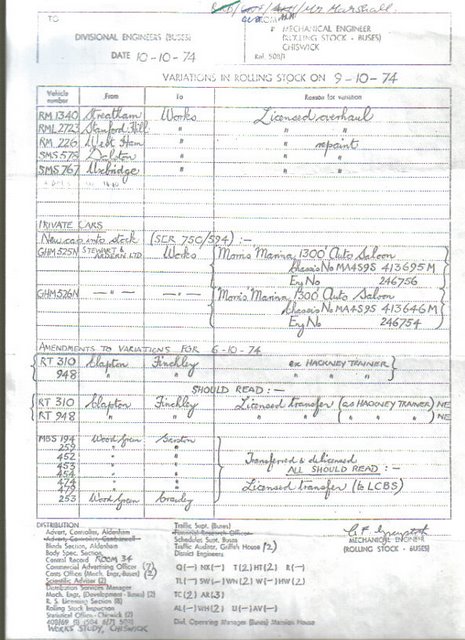 Mr Marshall.
TO
FROM
DIVISIONAL ENGINEERS (BUSES)
MECHANICAL ENGINEER
(ROLLING STOCK - BUSES)
CHISWICK
DATE 10-10-74
VARIATIONS IN ROLLING STOCK ON 9-10-74
Vehicle number From To Reason for variation
RM 1340 Streatham Works Licensed overhaul
RML 2723 Stamford Hill " " "
RM 226 West Ham " " repaint
SMS 575 Dalston " " "
SMS 767 Uxbridge " " "
PRIVATE CARS
New cap into stock (SER 750/594) :-
GHM 525N STEWART & ARDERN LTD Works Morris 'Marina' 1300 Auto Saloon
Chassis No MA4S9S 413695M
Eng No 246756
GHM 526N —"— —"— Morris 'Marina' 1300 Auto Saloon
Chassis No MA4S9S 413646M
Eng No 246754
AMENDMENTS TO VARIATIONS FOR 6-10-74
RT 310 Clapton Finchley ex HACKNEY TRAINER
948 " " " " "
SHOULD READ :—
RT 310 Clapton Finchley Licensed transfer (as HACKNEY TRAINER) NE
RT 948 " " " " ( " " " ) NE
MBS 194 Wood Green
259 " "
452 " "
453 " " Transferred & delicensed
454 " " ALL SHOULD READ :—
474 " "
479 " " Licensed transfer (to LCBS)
253 Wood Green Crawley
DISTRIBUTION
Advert. Controller, Aldenham
Blinds Section, Aldenham
Body Spec. Section
Control Records ROOM 34
Commercial Advertising Officer (7)
Costs Office (Mech. Engr. Buses) (2)
Scientific Adviser (2)
Distribution Services Manager
Mech. Engr. (Development - Buses) (2)
R. S. Licensing Section (8)
Rolling Stock Inspection
Statistical Office - Chiswick (2)
WORKS STUDY, CHISWICK
Traffic Supt. (Buses)
Financial Research Officer
Schedules Supt. Buses
Traffic Auditor, Griffith House (2)
District Engineers
Q(—) NX(—) T(2) HT(2) R(—)
TL(—) SW(—) WN(2) W(—) HW(2)
TC(2) AR(3)
AL(—) WH(2) U(—) AV(—)
Dist. Operating Manager (Buses) Mansion House
MECHANICAL ENGINEER
(ROLLING STOCK - BUSES)